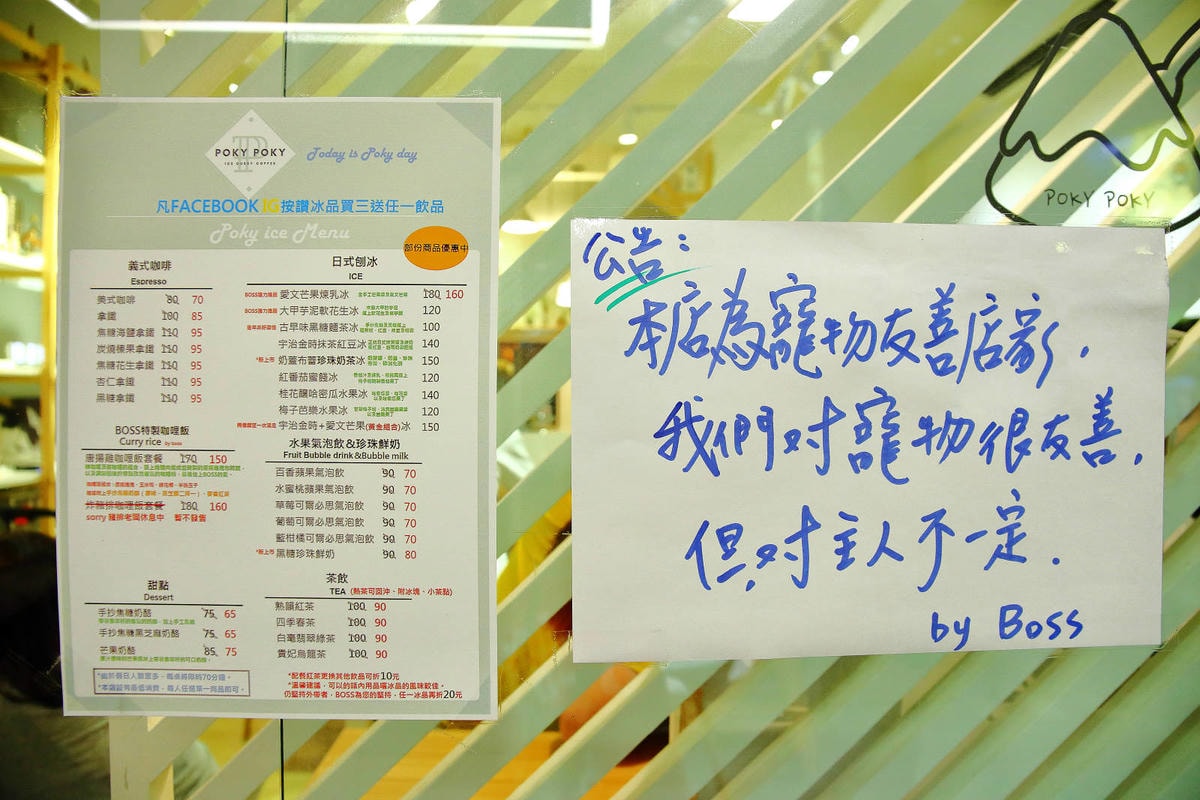 POKY POKY
ICE CURRY COFFEE
Today is Poky day
凡FACEBOOK IG按讚冰品買三送任一飲品
Poky ice Menu
部份商品優惠中
義式咖啡
Espresso
美式咖啡 80 70
拿鐵 100 85
焦糖海鹽拿鐵 110 95
炭燒榛果拿鐵 110 95
焦糖花生拿鐵 110 95
杏仁拿鐵 110 95
黑糖拿鐵 110 95
BOSS特製咖哩飯
Curry rice by boss
唐揚雞咖哩飯套餐 170 150
炸豬排咖哩飯套餐 180 160
sorry 豬排老闆休息中 暫不發售
甜點
Dessert
手抄焦糖奶酪 75 65
手抄焦糖黑芝麻奶酪 75 65
芒果奶酪 85 75
*由於假日人潮眾多，每桌將限時70分鐘。
*本店設有最低消費，每人任意單一商品即可。
日式刨冰
ICE
愛文芒果煉乳冰 180 160
大甲芋泥軟花生冰 120
古早味黑糖麵茶冰 100
宇治金時抹茶紅豆冰 140
*新上市 奶蓋布蕾珍珠奶茶冰 150
紅番茄蜜餞冰 120
桂花釀哈密瓜水果冰 140
梅子芭樂水果冰 120
宇治金時+愛文芒果(黃金組合)冰 150
水果氣泡飲&珍珠鮮奶
Fruit Bubble drink &Bubble milk
百香蘋果氣泡飲 90 70
水蜜桃蘋果氣泡飲 90 70
草莓可爾必思氣泡飲 90 70
葡萄可爾必思氣泡飲 90 70
藍柑橘可爾必思氣泡飲 90 70
*新上市 黑糖珍珠鮮奶 90 80
茶飲
TEA (熱茶可回沖、附冰塊、小茶點)
熟韻紅茶 100 90
四季春茶 100 90
白毫翡翠綠茶 100 90
貴妃烏龍茶 100 90
*配餐紅茶更換其他飲品可折10元
*溫馨建議，可以的話內用品嚐冰品的風味較佳。
仍堅持外帶者，BOSS為您的堅持，任一冰品再折20元
POKY POKY
公告：
本店為寵物友善店家，
我們对寵物很友善．
但，对主人不一定．
by Boss